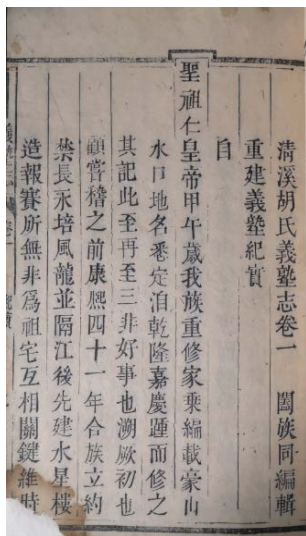 清溪胡氏義塾志卷一　闔族同編輯
重建義塾紀實
自
聖祖仁皇帝甲午歲我族重修家乘編載豪山
水口地名悉定洎乾隆嘉慶踵而修之
其記此至再至三非好事也溯厥初也
顧嘗稽之前康熙四十一年合族立約
禁長永培風龍並隔江後先建水星樓
造報賽所無非爲祖宅互相關鍵維時